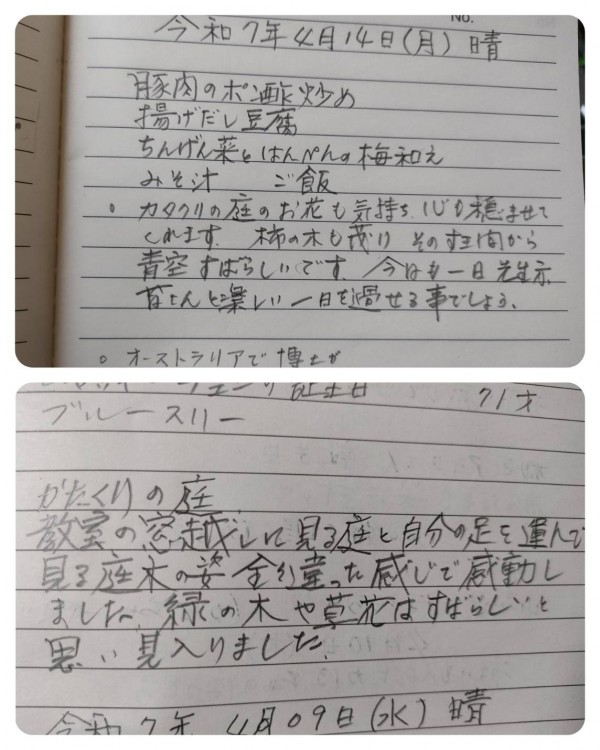 No.
令和7年4月14日(月) 晴
豚肉のポン酢炒め
揚げだし豆腐
ちんげん菜とはんぺんの梅和え
みそ汁 ご飯
○ カタクリの庭のお花も気持ち、心も穏ませて
くれます。柿の木も茂り そのすき間から
青空すばらしいです。今日も一日先生
皆さんと楽しい一日を過せる事でしょう。
○ オーストラリアで博士が
誕生日 71才
ブルースリー
かたくりの庭
教室の窓越しに見る庭と自分の足を運んで
見る庭木の姿 全り違った感じで感動し
ました。緑の木や草花はすばらしいと
思い見入りました。
令和7年 4月09日(水) 晴